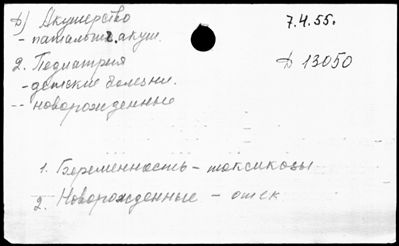 Д) Акушерство
7.4.55.
- патология акуш.
2. Педиатрия
Д 13050
- детские болезни.
-- новорожденные
1. Беременность - токсикозы
2. Новорожденные - отек